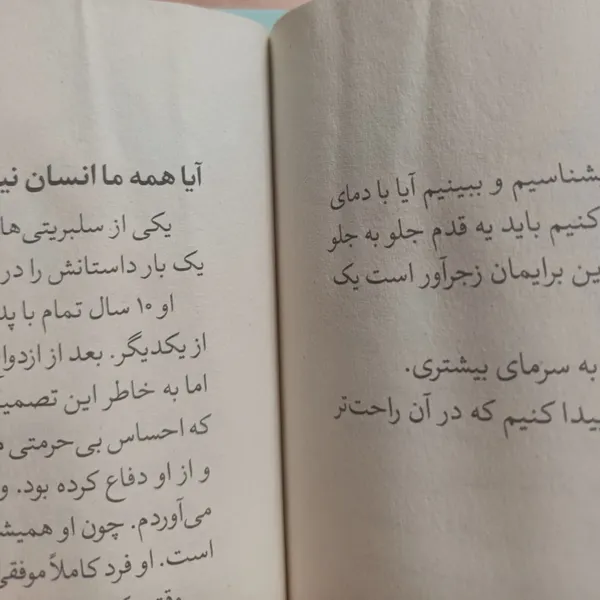 بشناسیم و ببینیم آیا با دمای
کنیم باید یه قدم جلو به جلو
این برایمان زجرآور است یک
به سرمای بیشتری.
پیدا کنیم که در آن راحت‌تر
آیا همه ما انسان
یکی از سلبریتی‌ها
یک بار داستانش را در
او ۱۰ سال تمام با
از یکدیگر. بعد از
اما به خاطر این
که احساس بی‌حرمتی
و از او دفاع کرده بود. و
می‌آوردم. چون او
است. او فرد کاملاً